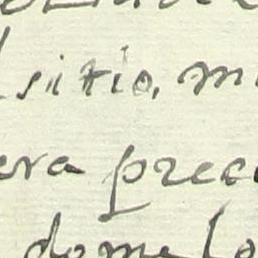 sitio, m
era prec
dome lo